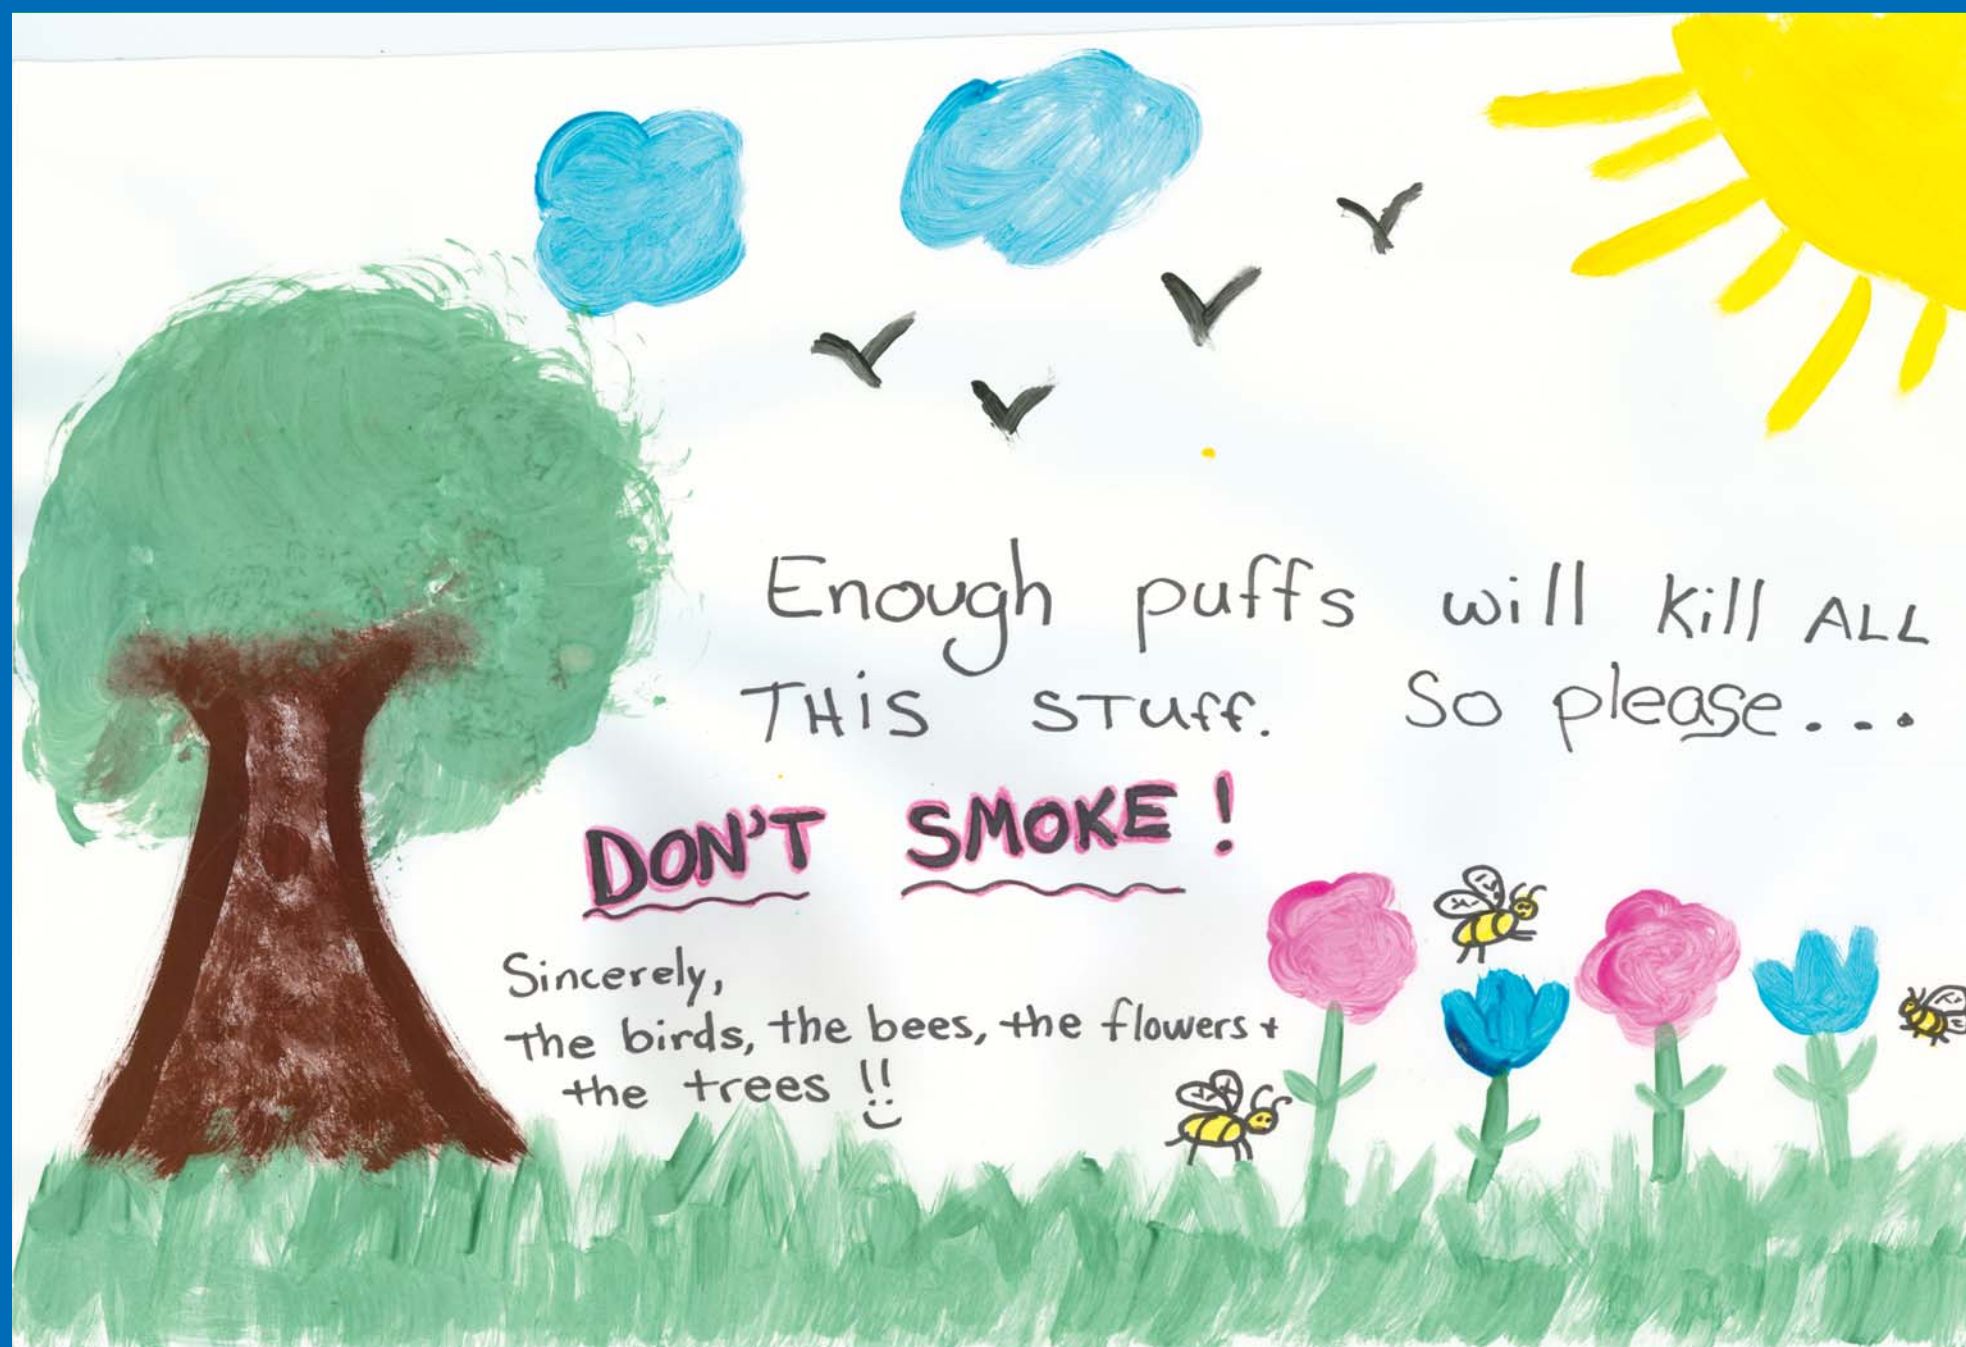 Enough puffs will kill ALL
THiS STUFF. So please...
DON'T SMOKE!
Sincerely,
the birds, the bees, the flowers +
the trees !!